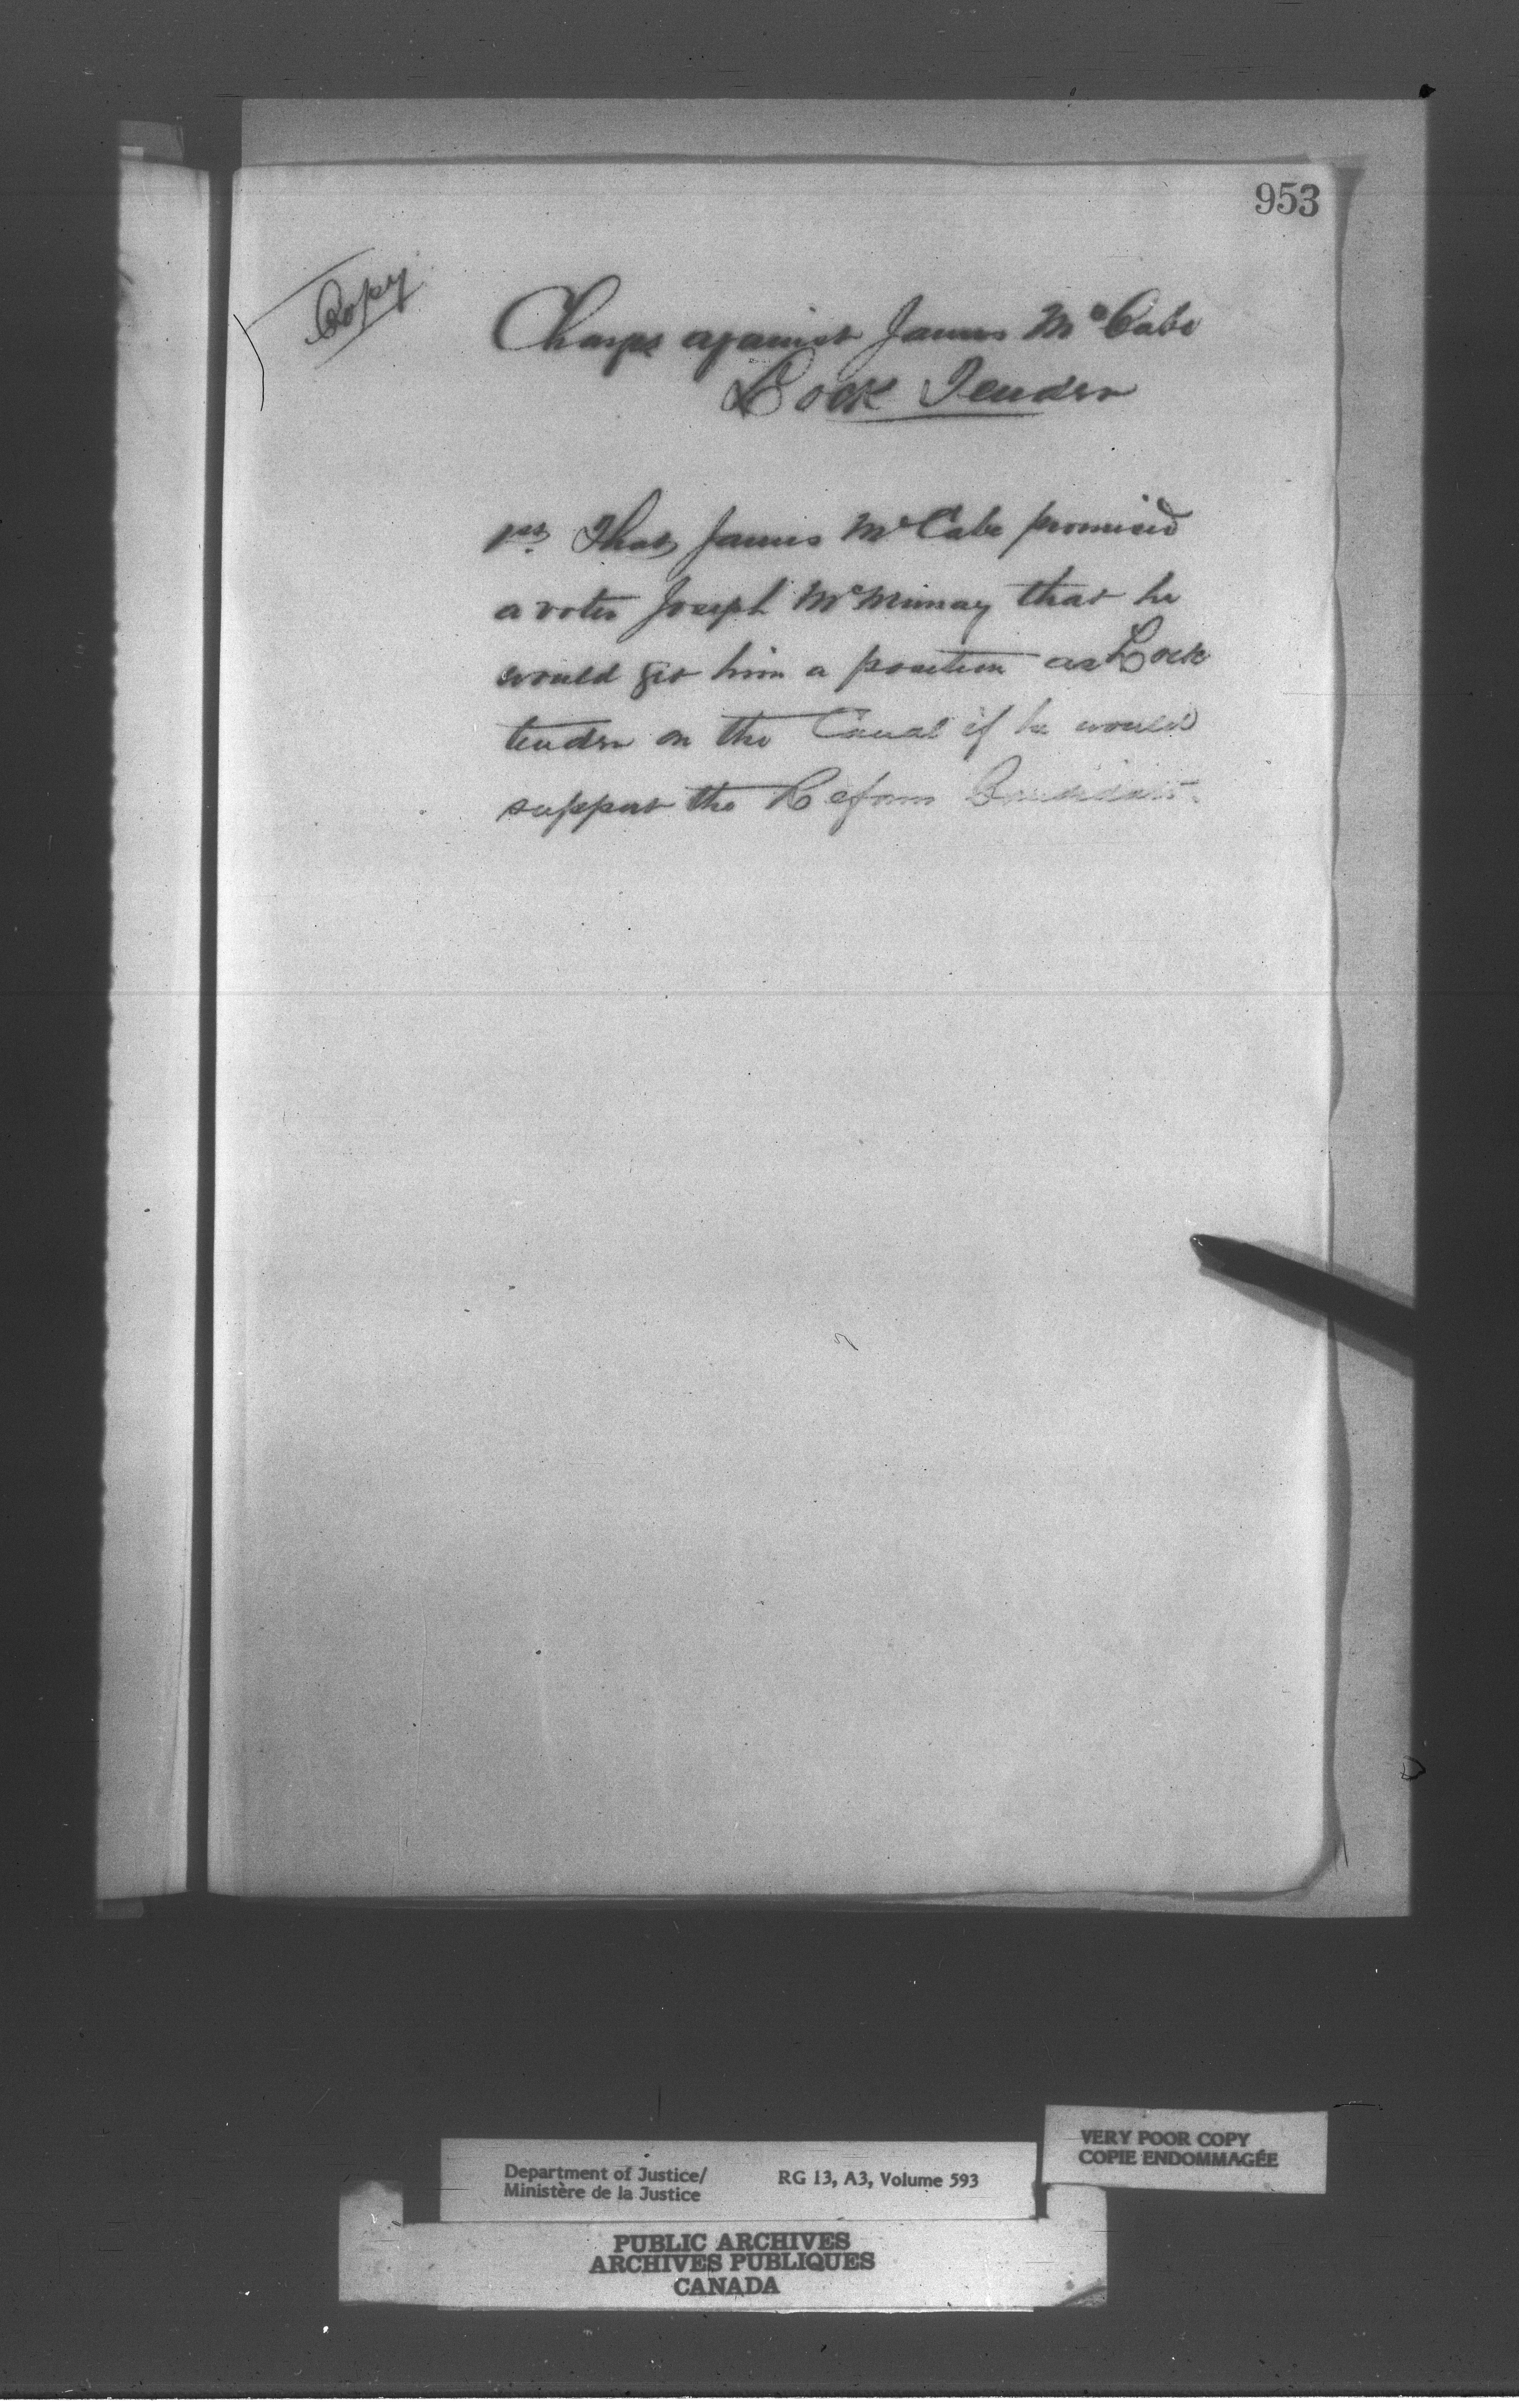 953
Copy
Charge against James McCabe
Lock Tender
1st. That James McCabe promised
a voter Joseph McMurray that he
would get him a position as Lock
tender on the Canal if he would
support the Reform Candidate.
VERY POOR COPY
COPIE ENDOMMAGÉE
Department of Justice/
Ministère de la Justice
RG 13, A3, Volume 593
PUBLIC ARCHIVES
ARCHIVES PUBLIQUES
CANADA